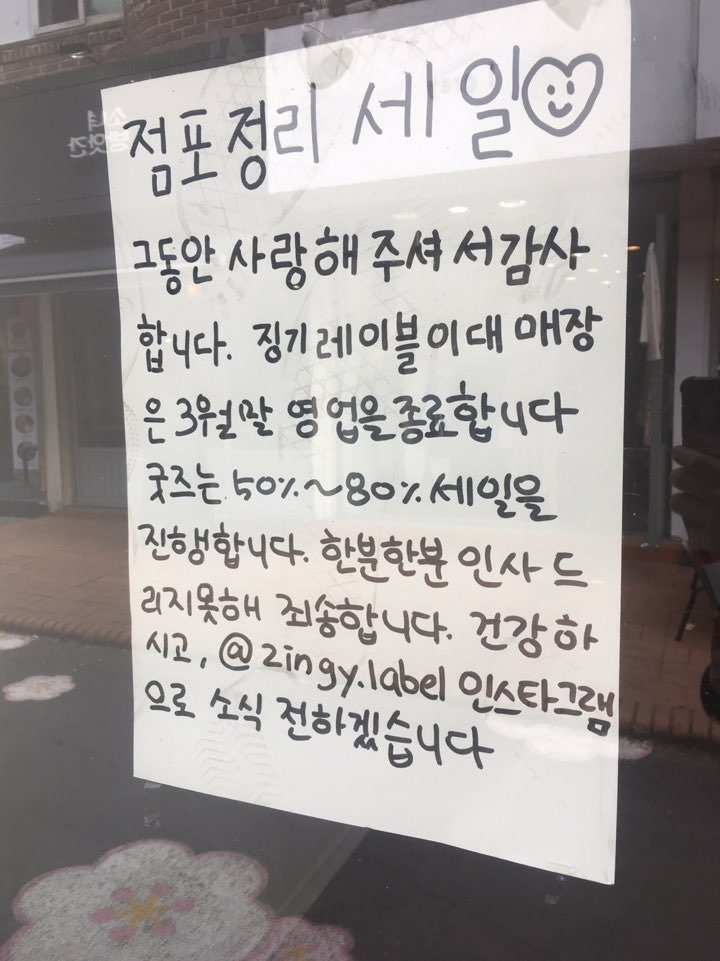 점포정리 세일
그동안 사랑해 주셔서감사
합니다. 징기레이블이대 매장
은 3월말 영업을종료합니다
굿즈는 50%~80% 세일을
진행합니다. 한분한분 인사 드
리지못해 죄송합니다. 건강하
시고, @zingy.label 인스타그램
으로 소식 전하겠습니다
소녀
방앗간